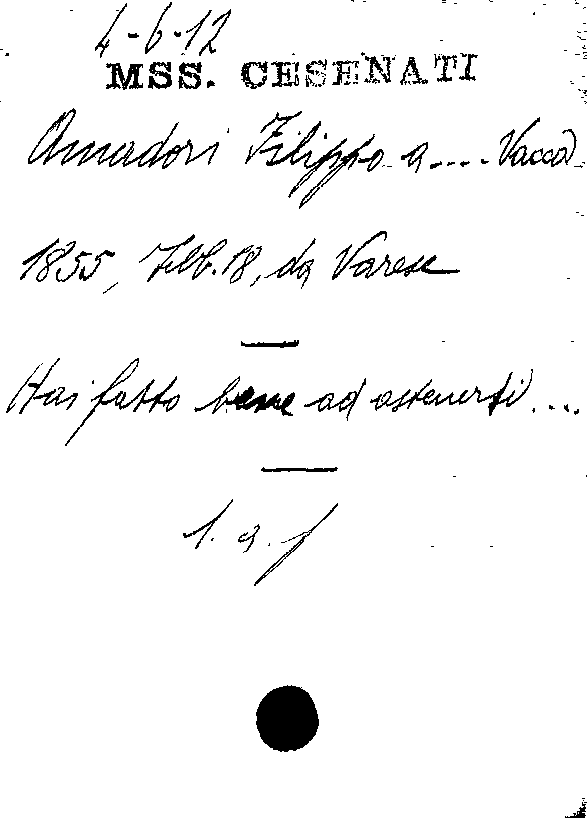 4-6-12
MSS. CESENATI
Amadori Filippo a .... Vacca
1855, Febb. 18, da Varese
Hai fatto bene ad astenerti ....
l. a. f